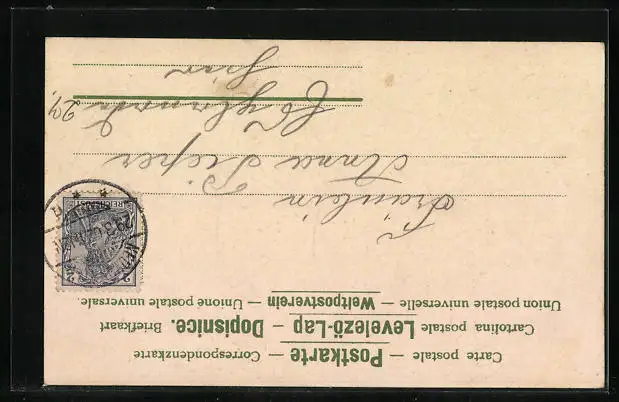 Carte postale — Postkarte — Correspondenzkarte
Cartolina postale Levelező-Lap — Dopisnice. Briefkaart
Union postale universelle — Weltpostverein — Unione postale universale.
REICHSPOST
2 2
Fräulein
Anna Pieper
hier
24